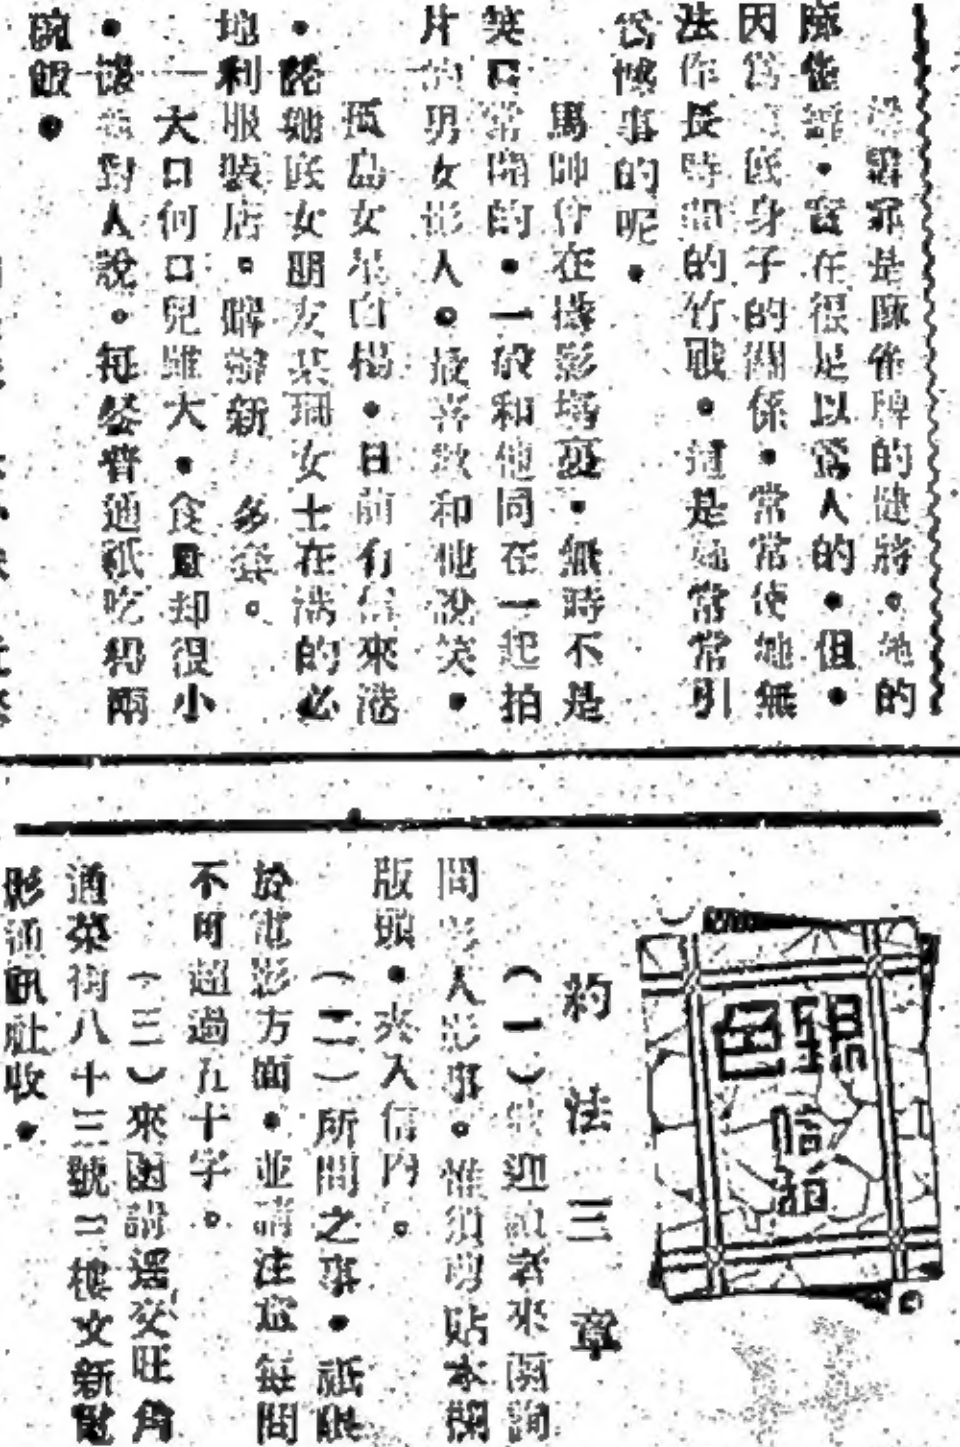 梁翠屏是麻雀牌的健將。她的
麻雀經・實在很足以驚人的・但・
因為底身子的關係・常常使她無
法作長時間的竹戰・這是她常常引
為憾事的呢・
馬師仔在攝影場憂・無時不是
笑口常開的・一般和他同在一起拍
片的男女影人・最喜歡和他說笑・
孤島女星白楊・日前有信來港
・託她底女朋友某女士在港的必
地利服裝店・購辦新 多套。
大口何口兒雖大・食量却很小
・據對人說。每餐普通祇吃得兩
碗飯・
信箱
約法三章
(一)歡迎讀者來函詢
問影人影事。惟須剪貼本欄
版頭・夾入信内。
(二)所問之事・祇限
於電影方面・並請注意每問
不可超過五十字。
(三)來函請逕交旺角
通菜街八十三號三樓文新電
影通訊社收・